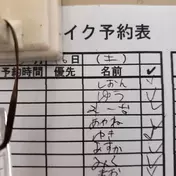 イク予約表
6日(土)
予約時間 優先 名前 ✓
しおん ✓
ゆう ✓
あやね ✓
ゆき ✓
あすか ✓
みく ✓